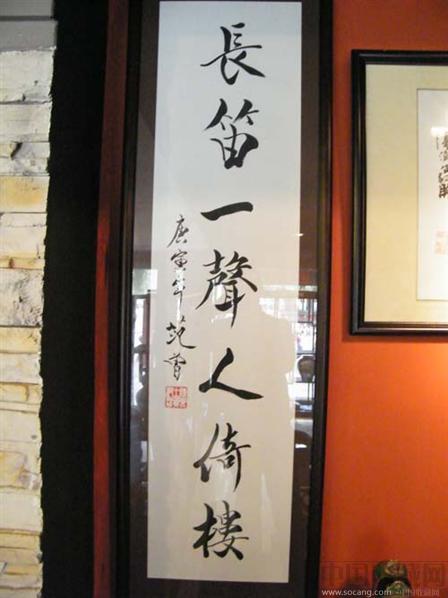 長笛一聲人倚樓
庚寅年 范曾
中国收藏网
www.socang.com 中国收藏网